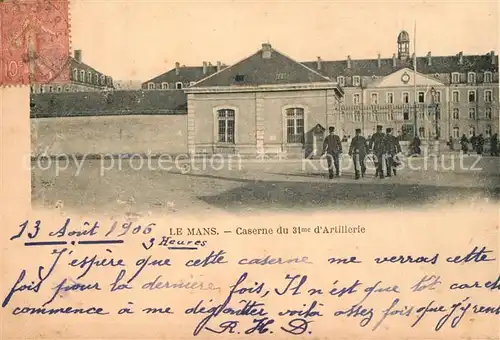 10
LE MANS. – Caserne du 31me d'Artillerie
13 Août 1906
3 Heures
J'espère que cette caserne me verras cette
fois pour la dernière fois, Il n'est que tot car est
commence à me dégoutter voilà assez fois que j'y rent
R. H. D.